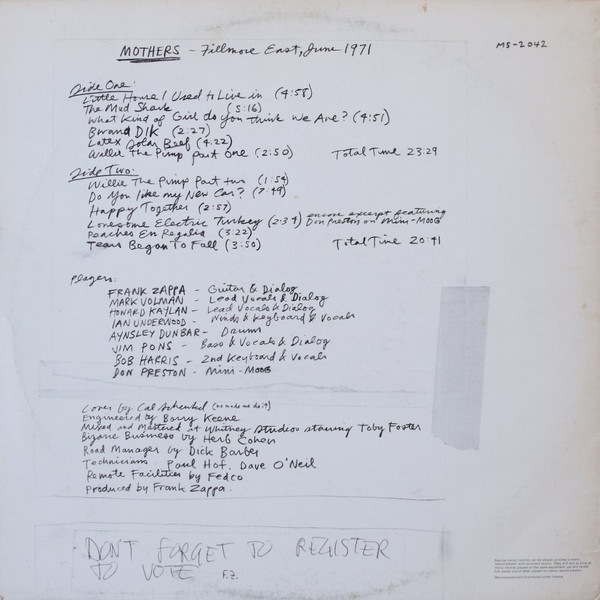 MOTHERS - Fillmore East, June 1971
MS-2042
Side One:
Little House I Used to Live in (4:58)
The Mud Shark (5:16)
What Kind of Girl do you think We Are? (4:51)
Bwana Dik (2:27)
Latex Solar Beef (4:22)
Willie The Pimp Part One (2:50) Total Time 23:29
Side Two:
Willie The Pimp Part two (1:54)
Do You like my New Car? (7:49)
Happy Together (2:57)
Lonesome Electric Turkey (2:34) encore excerpt featuring Don Preston on Mini-MOOG
Peaches En Regalia (3:22)
Tears Began To Fall (3:50) Total Time 20:41
Players:
FRANK ZAPPA - Guitar & Dialog
MARK VOLMAN - Lead Vocals & Dialog
HOWARD KAYLAN - Lead Vocals & Dialog
IAN UNDERWOOD - Winds & Keyboard & Vocals
AYNSLEY DUNBAR - Drums
JIM PONS - Bass & Vocals & Dialog
BOB HARRIS - 2nd Keyboard & Vocals
DON PRESTON - Mini-MOOG
Cover by Cal Schenkel (he made me do it)
Engineered by Barry Keene
Mixed and Mastered at Whitney Studios starring Toby Foster
Bizarre Business by Herb Cohen
Road Manager by Dick Barber
Technicians Paul Hof, Dave O'Neil
Remote Facilities by Fedco
Produced by Frank Zappa.
DON'T FORGET TO REGISTER
TO VOTE F.Z.